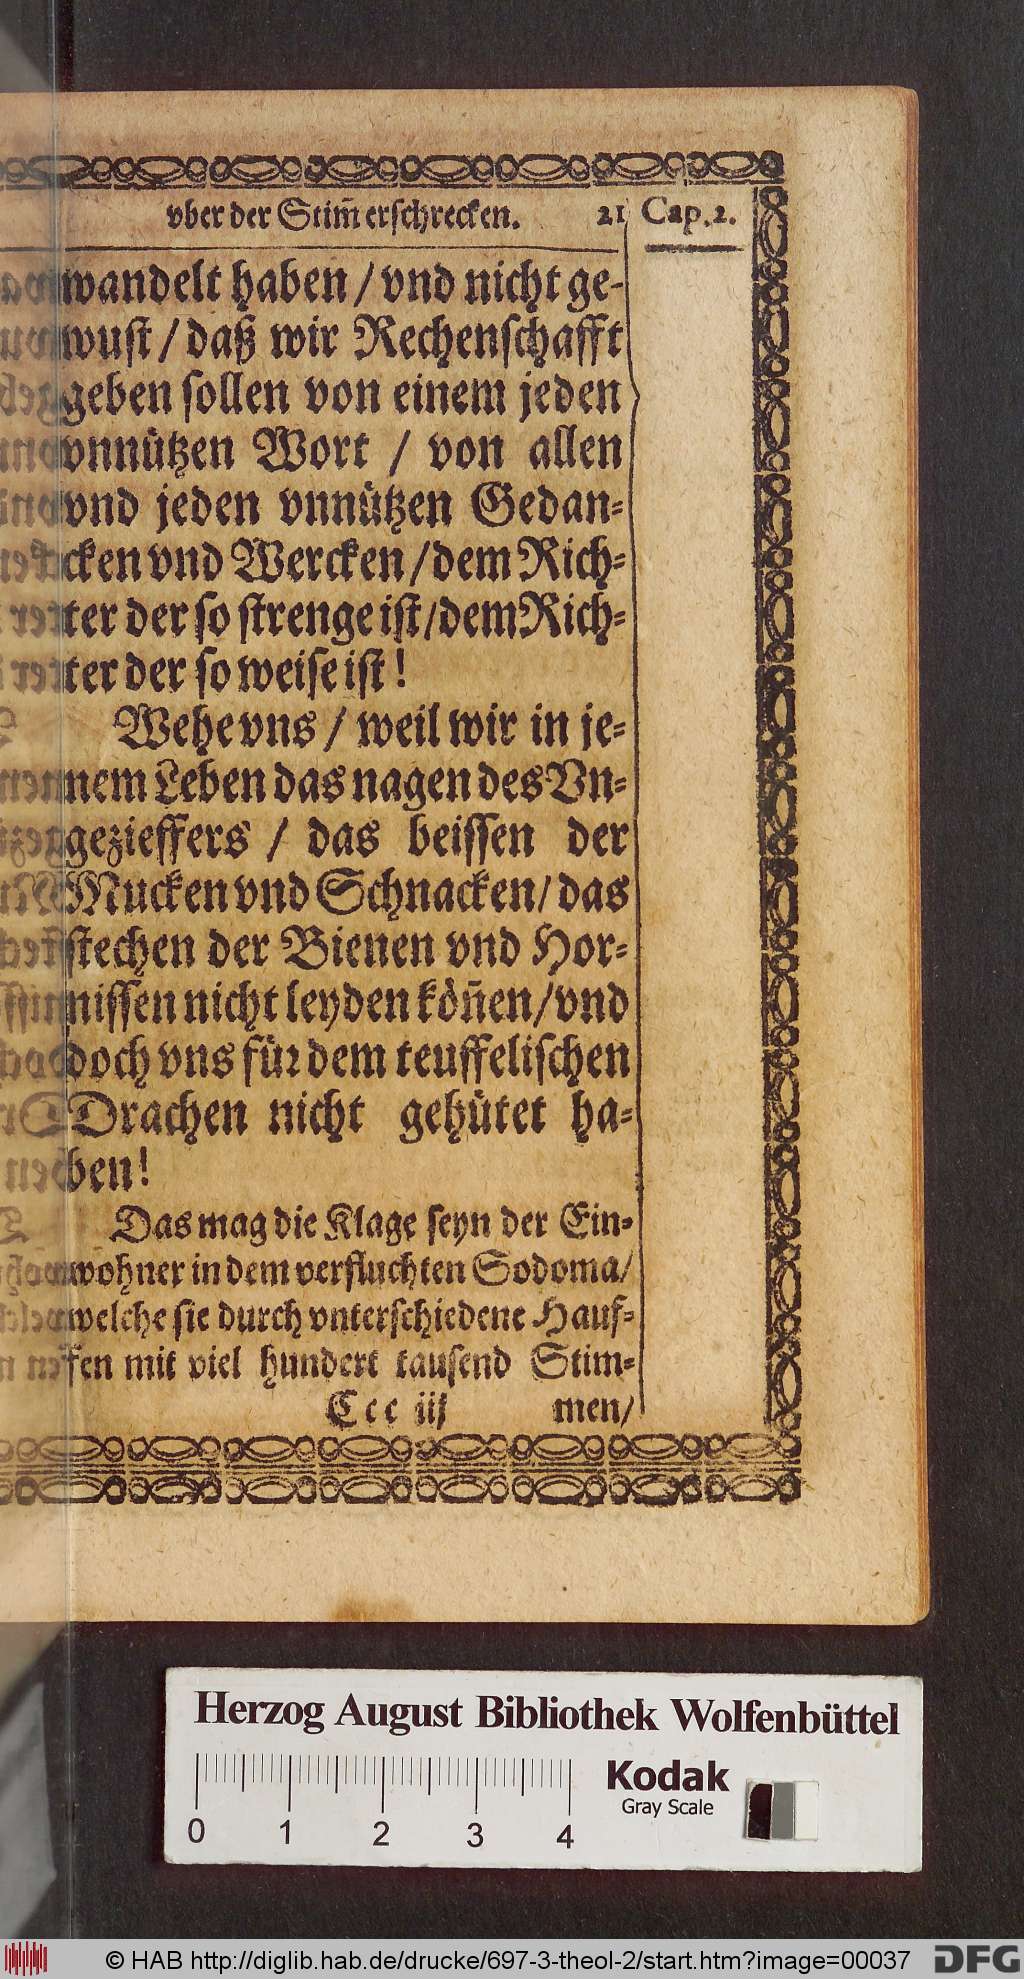 vber der Stim̃ erschrecken. 21 Cap. 2.
wandelt haben / vnd nicht ge-
wust / daß wir Rechenschafft
geben sollen von einem jeden
vnnützen Wort / von allen
vnd jeden vnnützen Gedan-
cken vnd Wercken / dem Rich-
ter der so strenge ist / dem Rich-
ter der so weise ist !
Wehe vns / weil wir in je-
nem Leben das nagen des Vn-
gezieffers / das beissen der
Mucken vnd Schnacken / das
stechen der Bienen vnd Hor-
nissen nicht leyden köñen / vnd
doch vns für dem teuffelischen
Drachen nicht gehütet ha-
ben !
Das mag die Klage seyn der Ein-
wohner in dem verfluchten Sodoma /
welche sie durch vnterschiedene Hauf-
fen mit viel hundert tausend Stim-
Ccc iij men /
Herzog August Bibliothek Wolfenbüttel
Kodak
Gray Scale
0 1 2 3 4
© HAB http://diglib.hab.de/drucke/697-3-theol-2/start.htm?image=00037 DFG